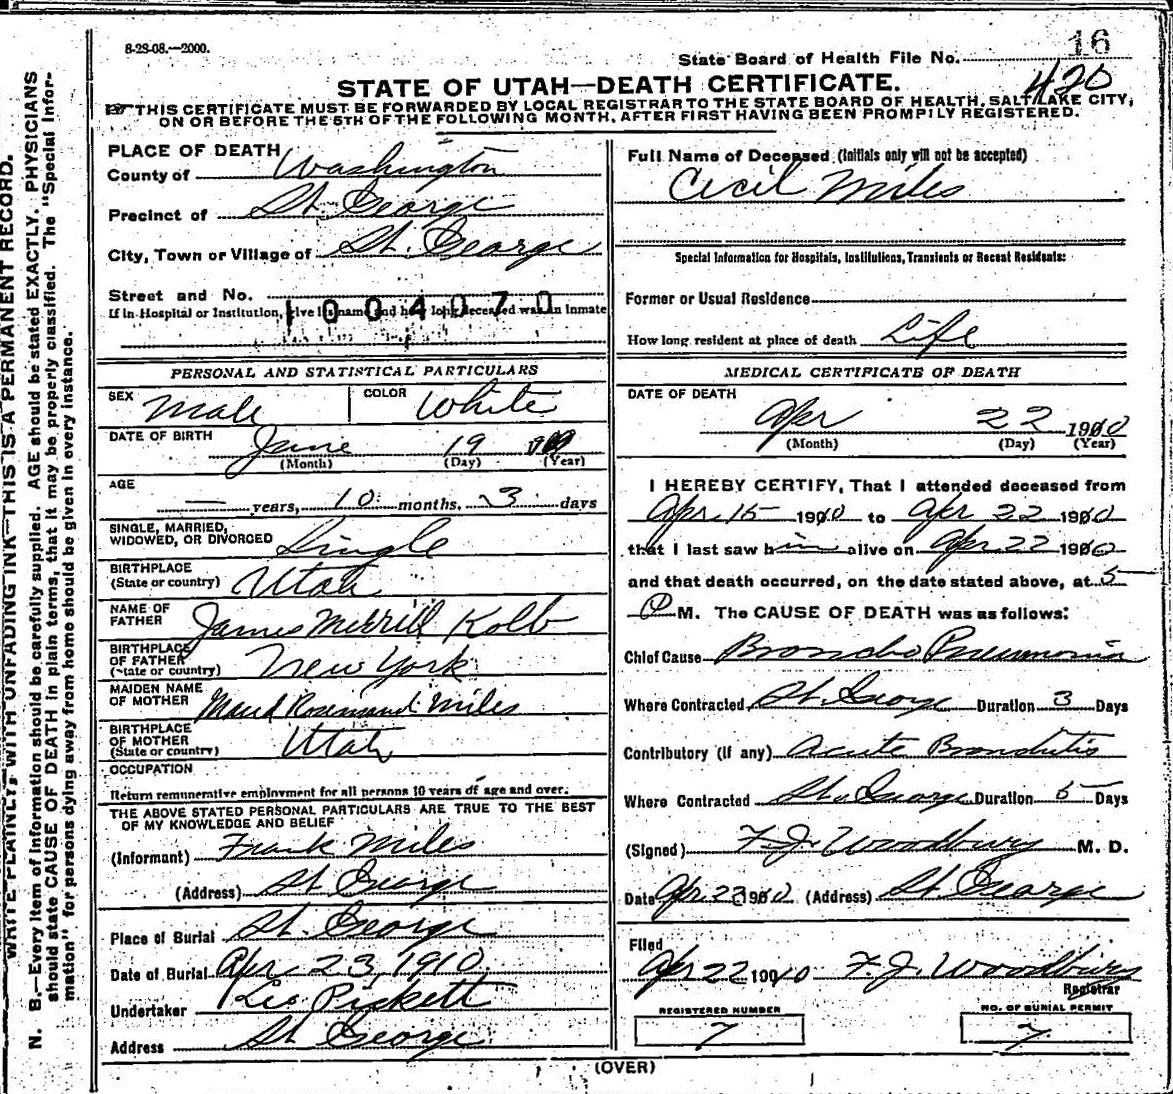 8-28-08.—2000.
16
State Board of Health File No.
420
STATE OF UTAH—DEATH CERTIFICATE.
THIS CERTIFICATE MUST BE FORWARDED BY LOCAL REGISTRAR TO THE STATE BOARD OF HEALTH, SALT LAKE CITY,
ON OR BEFORE THE 5TH OF THE FOLLOWING MONTH, AFTER FIRST HAVING BEEN PROMPILY REGISTERED.
WRITE PLAINLY, WITH UNFADING INK—THIS IS A PERMANENT RECORD.
N. B.—Every item of information should be carefully supplied. AGE should be stated EXACTLY. PHYSICIANS
should state CAUSE OF DEATH in plain terms, that it may be properly classified. The "Special Infor-
mation" for persons dying away from home should be given in every instance.
PLACE OF DEATH
County of Washington
Precinct of St. George
City, Town or Village of St. George
Street and No.
1004070
If in Hospital or Institution, give its name and how long deceased was an inmate
PERSONAL AND STATISTICAL PARTICULARS
SEX Male COLOR White
DATE OF BIRTH June 19
(Month) (Day) (Year)
AGE
— years, 10 months, 3 days
SINGLE, MARRIED,
WIDOWED, OR DIVORCED Single
BIRTHPLACE
(State or country) Utah
NAME OF
FATHER James Merrill Kolb
BIRTHPLACE
OF FATHER
(State or country) New York
MAIDEN NAME
OF MOTHER Maud Rosamund Miles
BIRTHPLACE
OF MOTHER
(State or country) Utah
OCCUPATION
Return remunerative employment for all persons 10 years of age and over.
THE ABOVE STATED PERSONAL PARTICULARS ARE TRUE TO THE BEST
OF MY KNOWLEDGE AND BELIEF
(Informant) Frank Miles
(Address) St George
Place of Burial St. George
Date of Burial Apr. 23, 1910
Undertaker Pickett
Address St George
Full Name of Deceased (Initials only will not be accepted)
Cecil Miles
Special Information for Hospitals, Institutions, Transients or Recent Residents:
Former or Usual Residence
How long resident at place of death Life
MEDICAL CERTIFICATE OF DEATH
DATE OF DEATH
Apr 22 1910
(Month) (Day) (Year)
I HEREBY CERTIFY, That I attended deceased from
Apr 15 1910 to Apr 22 1910
that I last saw him alive on Apr 22 1910
and that death occurred, on the date stated above, at 5
P M. The CAUSE OF DEATH was as follows:
Chief Cause Broncho Pneumonia
Where Contracted St. George Duration 3 Days
Contributory (if any) Acute Bronchitis
Where Contracted St. George Duration 5 Days
(Signed) F. J. Woodbury M. D.
Date Apr 23 1910 (Address) St George
Filed
Apr 22 1910 F. J. Woodbury
Registrar
REGISTERED NUMBER
7
NO. OF BURIAL PERMIT
7
(OVER)